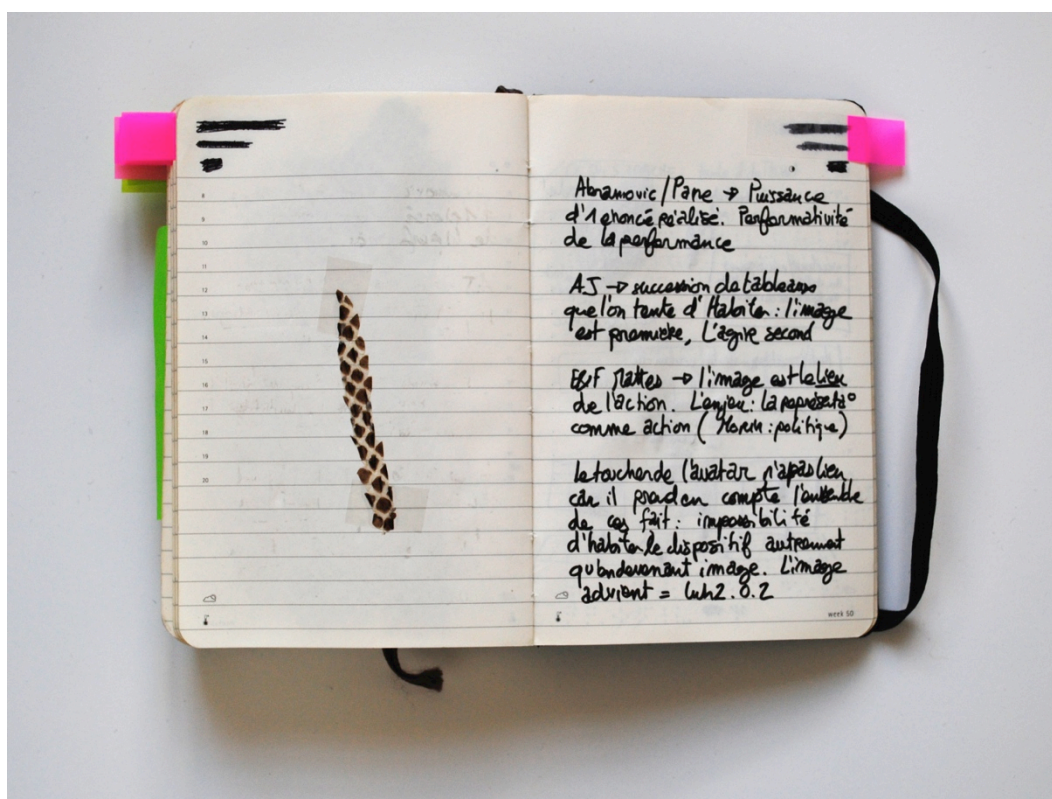 8
9
10
11
12
13
14
15
16
17
18
19
20
Abramovic/Pane → Puissance
d'1 énoncé réalisé. Performativité
de la performance
AJ → succession de tableaux
que l'on tente d'Habiter : l'image
est première, L'agir second
E&F Mattes → l'image est le lieu
de l'action. L'enjeu : la représentaº
comme action ( Morin : politique)
le toucher de l'avatar n'a pas lieu
car il prend en compte l'ensemble
de ces fait : impossibilité
d'habiter le dispositif autrement
qu'en devenant image. L'image
advient =
week 50